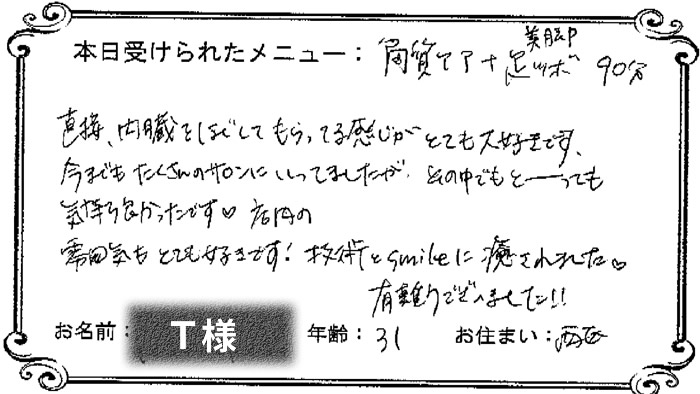 美脚
本日受けられたメニュー：角質ケア＋足ツボ 90分
直接、内臓をほぐしてもらってる感じがとても大好きです、
今までもたくさんのサロンにいってましたが、その中でもと――っても
気持ち良かったです♡ 店内の
雰囲気もとても好きです！技術とsmileに癒されました♡
有難うございました!!
お名前：T様 年齢：31 お住まい：西区